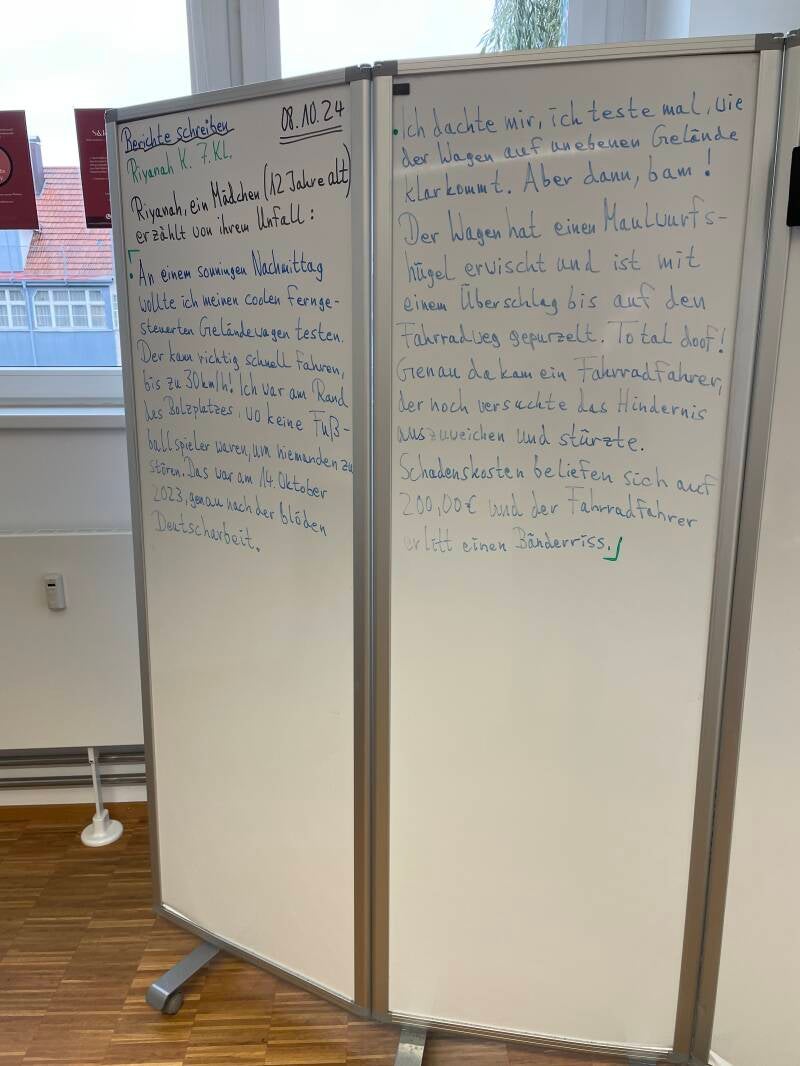 Berichte schreiben
08.10.24
Riyanah K. 7.Kl.
Riyanah, ein Mädchen (12 Jahre alt)
erzählt von ihrem Unfall:
An einem sonningen Nachmittag
wollte ich meinen coolen fernge-
steuerten Geländewagen testen.
Der kam richtig schnell fahren,
bis zu 30km/h! Ich war am Rand
des Bolzplatzes, wo keine Fuß-
ballspieler waren, um niemanden zu
stören. Das war am 14. Oktober
2023, genau nach der blöden
Deutscharbeit.
Ich dachte mir, ich teste mal, wie
der Wagen auf unebenen Gelände
klarkommt. Aber dann, bam!
Der Wagen hat einen Maulwurfs-
hügel erwischt und ist mit
einem Überschlag bis auf den
Fahrradweg gepurzelt. Total doof!
Genau da kam ein Fahrradfahrer,
der noch versuchte das Hindernis
auszuweichen und stürzte.
Schadenskosten beliefen sich auf
200,00€ und der Fahrradfahrer
erlitt einen Bänderriss.